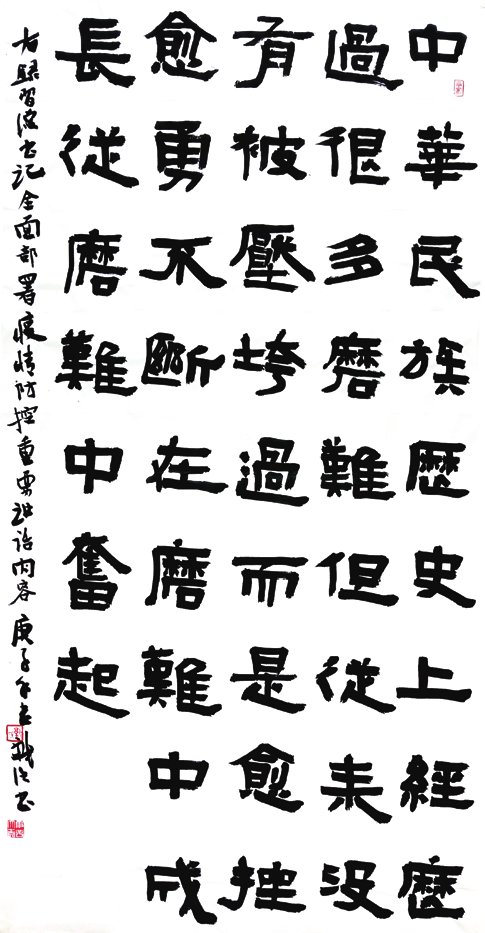 中華民族歷史上經歷
過很多磨難但從来没
有被壓垮過而是愈挫
愈勇不斷在磨難中成
長從磨難中奮起
右録習总书记全面部署疫情防控重要讲话内容庚子年